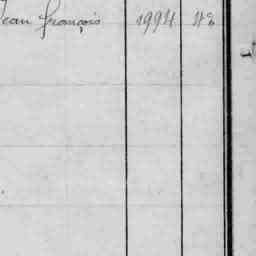 Jean françois 1994 42